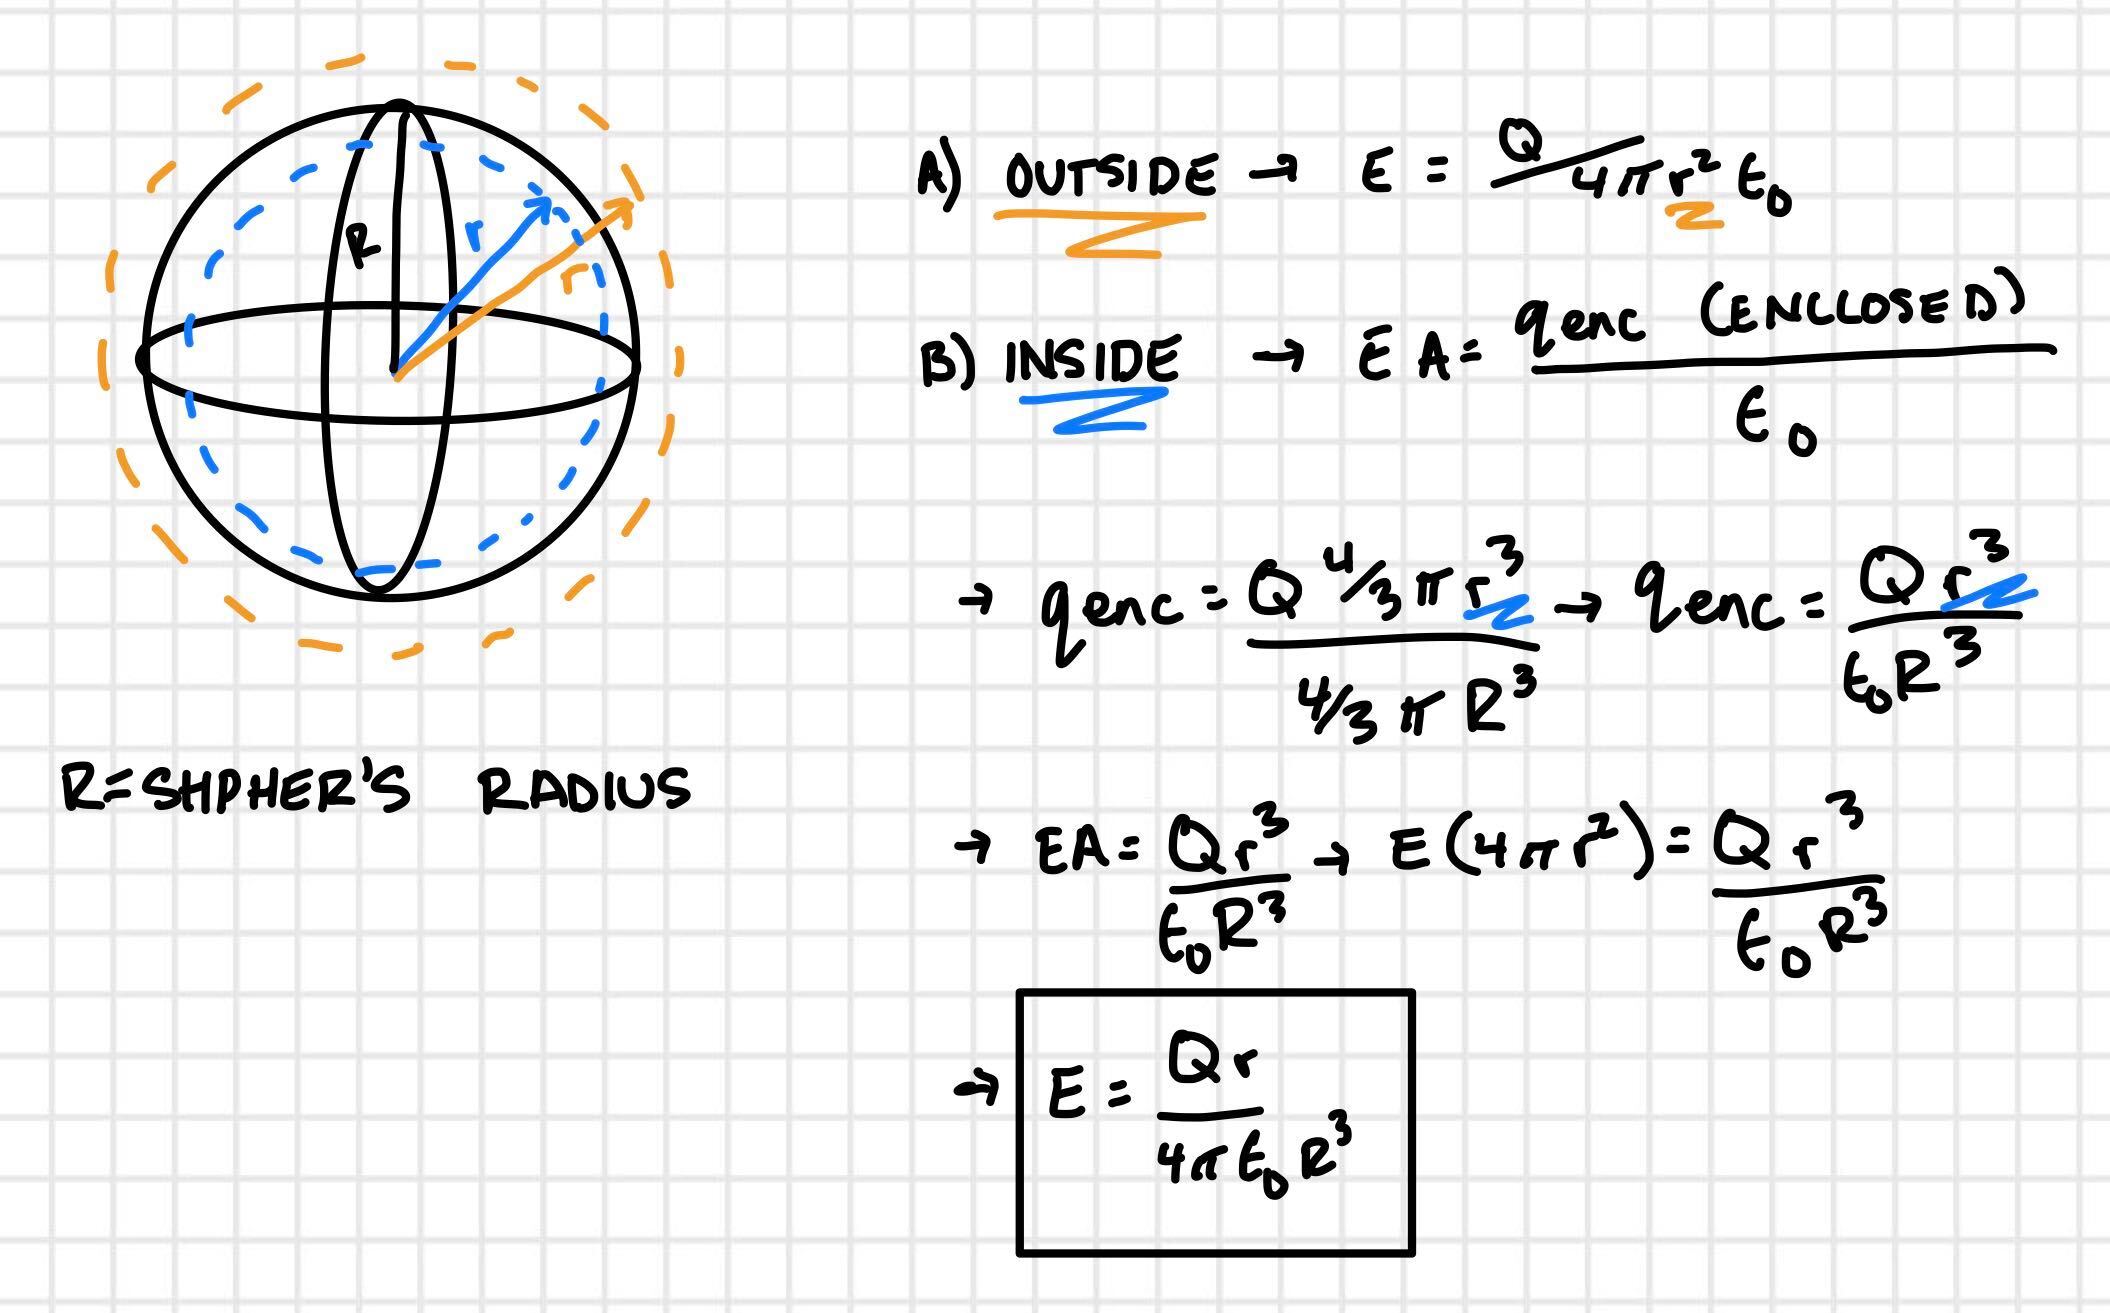 R
r
r
R=SHPHER'S RADIUS
A) OUTSIDE → E = Q/4πr² ε₀
B) INSIDE → E A = qenc (ENCLOSED) / ε₀
→ qenc = Q 4/3 π r³ / 4/3 π R³ → qenc = Q r³ / ε₀R³
→ EA = Qr³ / ε₀R³ → E(4πr²) = Q r³ / ε₀R³
→ E = Qr / 4πε₀R³